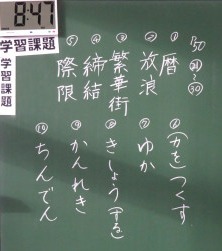 8:47
学習課題
学習課題
'50 ㉑〜㉚
① 暦
② 放浪
③ 繁華街
④ 締結
⑤ 際限
⑥ (力を)つくす
⑦ ゆか
⑧ きしょう(する)
⑨ かんれき
⑩ ちんでん